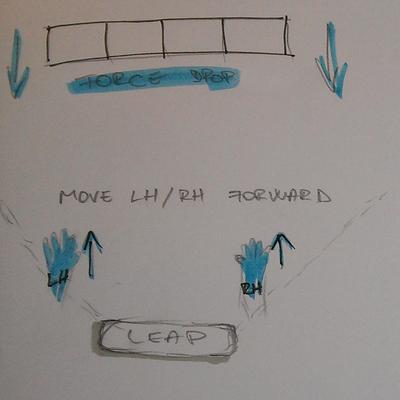 FORCE DROP
MOVE LH/RH FORWARD
LH
RH
LEAP